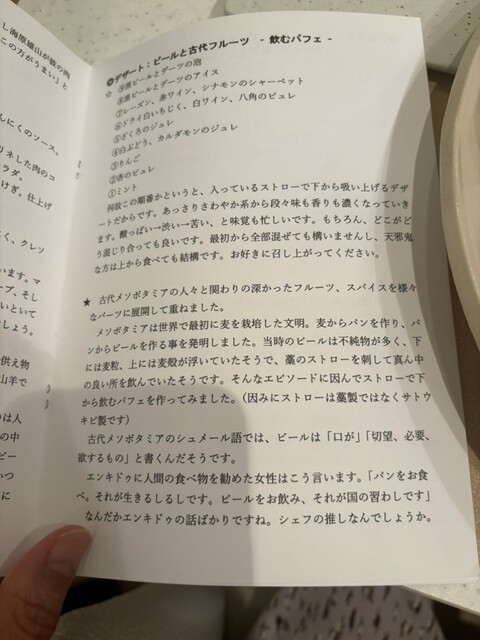 し海原雄山が豚の肉
この方がうまい」と
んにくのソース。
リネした肉のコ
ラダ。
けぎ。仕上げ
く、クレソ
います。マ
ープ、そし
いといて
でしょう。
供え物
山羊で
は人
の中
ビー
いつ
に
◎デザート：ビールと古代フルーツ - 飲むパフェ -
☆ ⑨黒ビールとデーツの泡
⑧黒ビールとデーツのアイス
⑦レーズン、赤ワイン、シナモンのシャーベット
⑥ドライ白いちじく、白ワイン、八角のピュレ
⑤ざくろのジュレ
④白ぶどう、カルダモンのジュレ
③りんご
②杏のピュレ
①ミント
何故この順番かというと、入っているストローで下から吸い上げるデザ
ートだからです。あっさりさわやか系から段々味も香りも濃くなっていき
ます。酸っぱい→渋い→苦い、と味覚も忙しいです。もちろん、どこがど
う混じり合っても良いです。最初から全部混ぜても構いませんし、天邪鬼
な方は上から食べても結構です。お好きに召し上がってください。
★ 古代メソポタミアの人々と関わりの深かったフルーツ、スパイスを様々
なパーツに展開して重ねました。
メソポタミアは世界で最初に麦を栽培した文明。麦からパンを作り、パ
ンからビールを作る事を発明しました。当時のビールは不純物が多く、下
には麦粒、上には麦殻が浮いていたそうで、藁のストローを刺して真ん中
の良い所を飲んでいたそうです。そんなエピソードに因んでストローで下
から飲むパフェを作ってみました。（因みにストローは藁製ではなくサトウ
キビ製です）
古代メソポタミアのシュメール語では、ビールは「口が」「切望、必要、
欲するもの」と書くんだそうです。
エンキドゥに人間の食べ物を勧めた女性はこう言います。「パンをお食
べ。それが生きるしるしです。ビールをお飲み、それが国の習わしです」
なんだかエンキドゥの話ばかりですね。シェフの推しなんでしょうか。